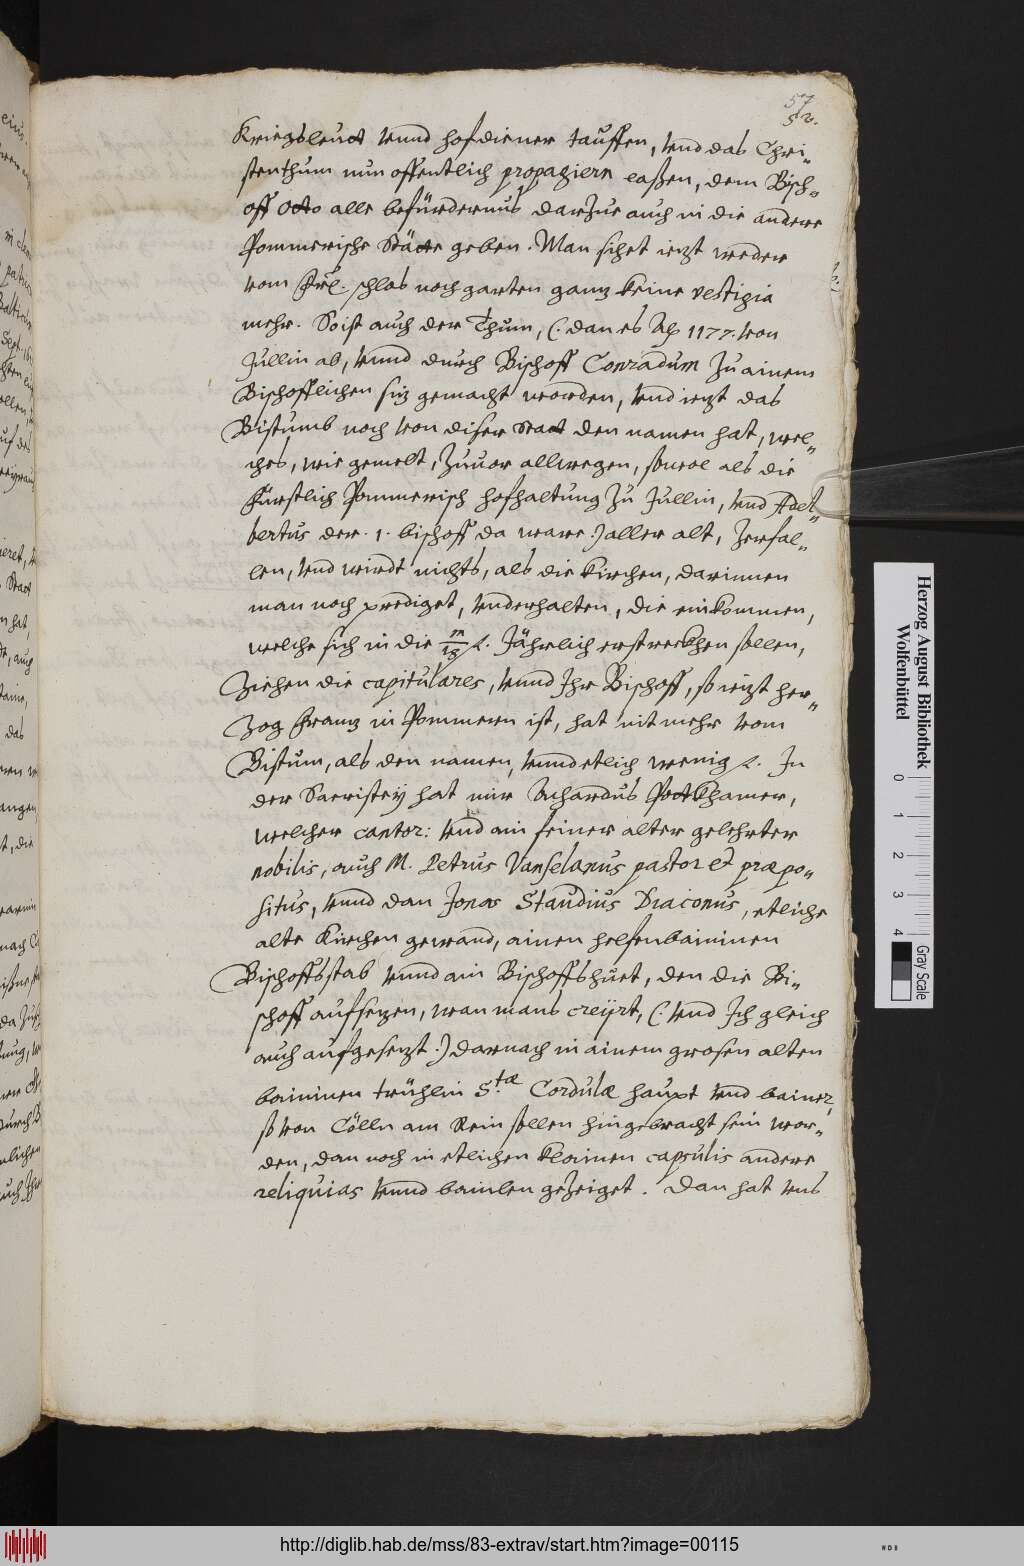 57
52.
Kriegsleutt vnnd hofdiener tauffen, vnd das Chri„
stenthum nun offentlich propagiern laßen, dem Bisch„
off Otto alle befürdernus darzue auch in die andere
Pommerische Stätte geben. Man sihet iezt weder
vom Fürstl. schlos noch garten ganz keine vestigia
mehr. So ist auch der Thum, (: dan es Ao 1177. von
Jullin ab, vnnd durch Bischoff Conradum zu ainem
Bischofflichen siz gemacht worden, vnd iezt das
Bistumb noch von diser Statt den namen hat, wel„
ches, wie gemelt, zuuor allwegen, sowol als die
Fürstlich Pommerisch hofhaltung zu Jullin, vnd Adel„
bertus der .1. bischoff da ware :) aller alt, zerfal„
len, vnd wirdt nichts, als die kirchen, darinnen
man noch prediget, vnderhalten, die einkommen,
welche sich in die m/18 f. Jährlich erstreckhen sollen,
ziehen die capitulares, vnnd Ihr Bischoff, so iezt her„
zog Franz in Pommern ist, hat nit mehr vom
Bistum, als den namen, vnnd etlich wenig f. In
der Sacristey hat mir Achardus Pottkhamer,
welcher cantor: vnd ain feiner alter gelehrter
nobilis, auch M. Petrus Vanselanus pastor et præpo„
situs, vnnd dan Jonas Staudius Diaconus, etliche
alte Kirchen gewand, ainen helfenbaininen
Bischoffsstab vnnd ain Bischoffshuet, den die Bi„
schoff aufsezen, wan mans creÿrt, (: vnd Ich gleich
auch aufgesezt :) darnach in ainem grosen alten
baininen trühlin S.tæ Cordulæ haupt vnd bainer,
so von Cölln am Rein sollen hingebracht sein wor„
den, dan noch in etlichen klainen capsulis andere
reliquias vnnd bainlen gezeiget. Dan hat vns
Herzog August Bibliothek
Wolfenbüttel
0 1 2 3 4
Gray Scale
http://diglib.hab.de/mss/83-extrav/start.htm?image=00115